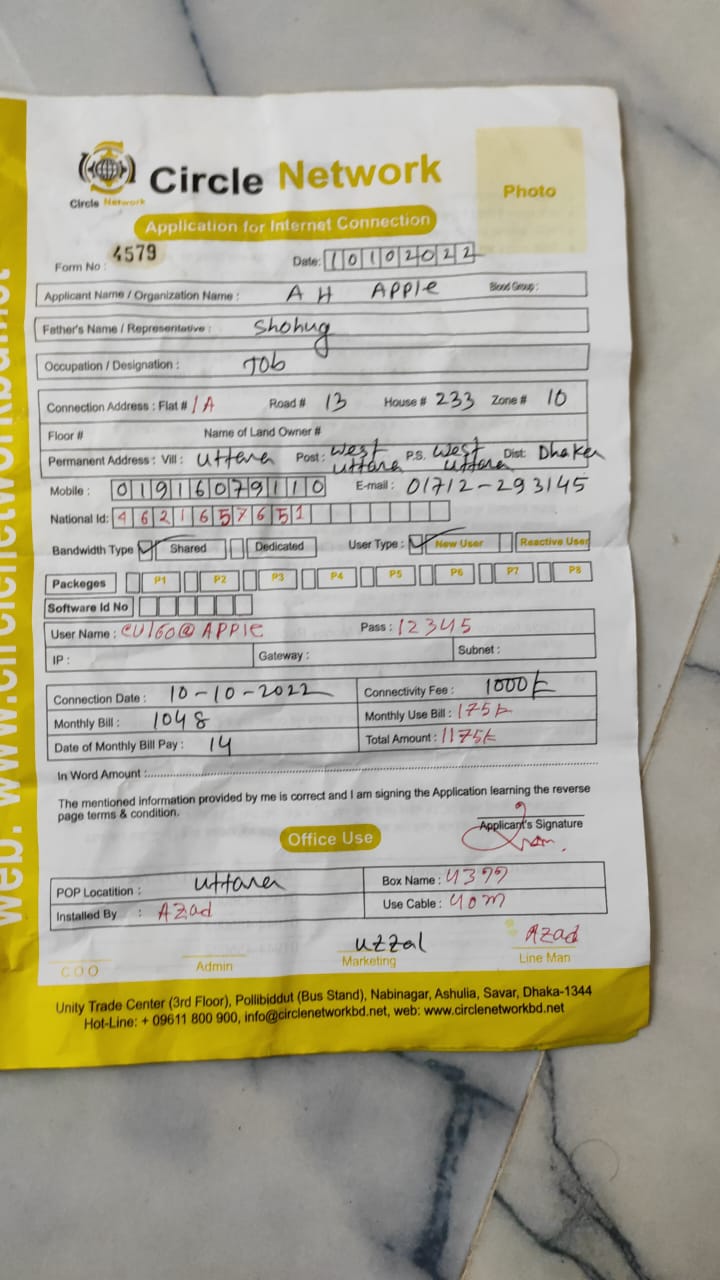 Circle Network
Circle Network
Photo
Application for Internet Connection
Form No : 4579 Date: 10102022
Applicant Name / Organization Name : A H APPle Blood Group :
Father's Name / Representative : Shohug
Occupation / Designation : Job
Connection Address : Flat # 1A Road # 13 House # 233 Zone # 10
Floor # Name of Land Owner #
Permanent Address : Vill : Uttara Post : West Uttara P.S. West Uttara Dist: Dhaka
Mobile : 01916079110 E-mail : 01712-293145
National Id: 4621657651
Bandwidth Type Shared Dedicated User Type : New User Reactive User
Packeges P1 P2 P3 P4 P5 P6 P7 P8
Software Id No
User Name : @APPle Pass : 12345
IP : Gateway : Subnet :
Connection Date : 10-10-2022 Connectivity Fee : 1000
Monthly Bill : 1048 Monthly Use Bill : 175
Date of Monthly Bill Pay : 14 Total Amount : 1175
In Word Amount :
The mentioned information provided by me is correct and I am signing the Application learning the reverse
page terms & condition.
Applicant's Signature
Office Use
POP Locatition : Uttara Box Name :
Installed By : Azad Use Cable : 40m
C.O.O Admin Uzzal Marketing Azad Line Man
Unity Trade Center (3rd Floor), Pollibiddut (Bus Stand), Nabinagar, Ashulia, Savar, Dhaka-1344
Hot-Line: + 09611 800 900, info@circlenetworkbd.net, web: www.circlenetworkbd.net
web: www.circlenetworkbd.net